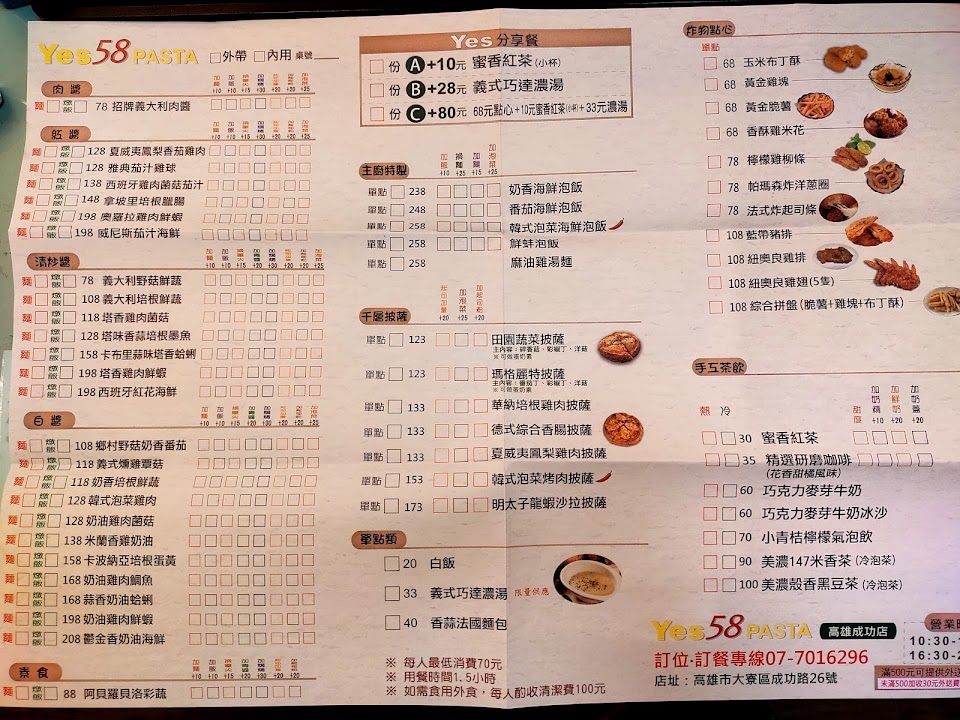 Yes58 PASTA □外帶 □內用 桌號
肉醬
麵 燉飯 78 招牌義大利肉醬
紅醬
麵 燉飯 128 夏威夷鳳梨番茄雞肉
麵 燉飯 128 雅典茄汁雞球
麵 燉飯 138 西班牙雞肉菌菇茄汁
麵 燉飯 148 拿坡里培根臘腸
麵 燉飯 198 奧羅拉雞肉鮮蝦
麵 燉飯 198 威尼斯茄汁海鮮
清炒醬
麵 燉飯 78 義大利野菇鮮蔬
麵 燉飯 108 義大利培根鮮蔬
麵 燉飯 118 塔香雞肉菌菇
麵 燉飯 128 塔味香蒜培根墨魚
麵 燉飯 158 卡布里蒜味塔香蛤蜊
麵 燉飯 198 塔香雞肉鮮蝦
麵 燉飯 198 西班牙紅花海鮮
白醬
麵 燉飯 108 鄉村野菇奶香番茄
麵 燉飯 118 義式燻雞蕈菇
麵 燉飯 118 奶香培根鮮蔬
麵 燉飯 128 韓式泡菜雞肉
麵 燉飯 128 奶油雞肉菌菇
麵 燉飯 138 米蘭香雞奶油
麵 燉飯 158 卡波納亞培根蛋黃
麵 燉飯 168 奶油雞肉鯛魚
麵 燉飯 168 蒜香奶油蛤蜊
麵 燉飯 198 奶油雞肉鮮蝦
麵 燉飯 208 鬱金香奶油海鮮
素食
麵 燉飯 88 阿貝羅貝洛彩蔬
Yes 分享餐
份 A +10元 蜜香紅茶(小杯)
份 B +28元 義式巧達濃湯
份 C +80元 68元點心+10元蜜香紅茶(小杯)+33元濃湯
主廚特製
單點 238 奶香海鮮泡飯
單點 248 番茄海鮮泡飯
單點 258 韓式泡菜海鮮泡飯
單點 258 鮮蚌泡飯
單點 258 麻油雞湯麵
千層披薩
單點 123 田園蔬菜披薩
主內容:碎香菇、彩椒丁、洋菇
※可做蛋奶素
單點 123 瑪格麗特披薩
主內容:番茄丁、彩椒丁、洋菇
※可做蛋奶素
單點 133 華納培根雞肉披薩
單點 133 德式綜合香腸披薩
單點 133 夏威夷鳳梨雞肉披薩
單點 153 韓式泡菜烤肉披薩
單點 173 明太子龍蝦沙拉披薩
單點類
20 白飯
33 義式巧達濃湯 限量供應
40 香蒜法國麵包
※ 每人最低消費70元
※ 用餐時間1.5小時
※ 如需食用外食,每人酌收清潔費100元
炸物點心
單點
68 玉米布丁酥
68 黃金雞塊
68 黃金脆薯
68 香酥雞米花
78 檸檬雞柳條
78 帕瑪森炸洋蔥圈
78 法式炸起司條
108 藍帶豬排
108 紐奧良雞排
108 紐奧良雞翅(5隻)
108 綜合拼盤(脆薯+雞塊+布丁酥)
手工茶飲
熱 冷 甜度 加奶精 +10 加鮮奶 +20 加奶蓋 +20
30 蜜香紅茶
35 精選研磨咖啡
(花香甜橘風味)
60 巧克力麥芽牛奶
60 巧克力麥芽牛奶冰沙
70 小青桔檸檬氣泡飲
90 美濃147米香茶 (冷泡茶)
100 美濃殼香黑豆茶 (冷泡茶)
Yes58 PASTA 高雄成功店
訂位·訂餐專線07-7016296
店址:高雄市大寮區成功路26號
營業時
10:30-1
16:30-2
滿500元可提供外送
未滿500加收30元外送費